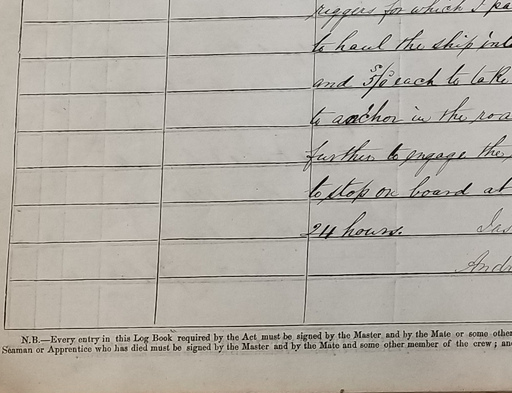 riggers for which I pa
to haul the ship into
and 5/0 each to take
to anchor in the roa
further to engage the
to stop on board at
24 hours. Jas
Andr
N.B.—Every entry in this Log Book required by the Act must be signed by the Master and by the Mate or some other
Seaman or Apprentice who has died must be signed by the Master and by the Mate and some other member of the crew; and